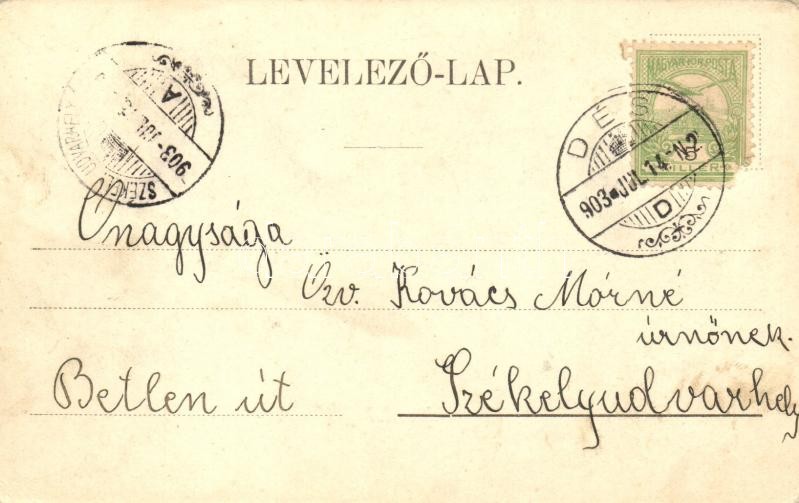 LEVELEZŐ-LAP.
MAGYAR KIR. POSTA
DÉS
903 JUL 14 N2
D
SZÉKELYUDVARHELY
903 JUL
A
Őnagysága
Özv. Kovács Mórné
úrnőnek.
Betlen út
Székelyudvarhely